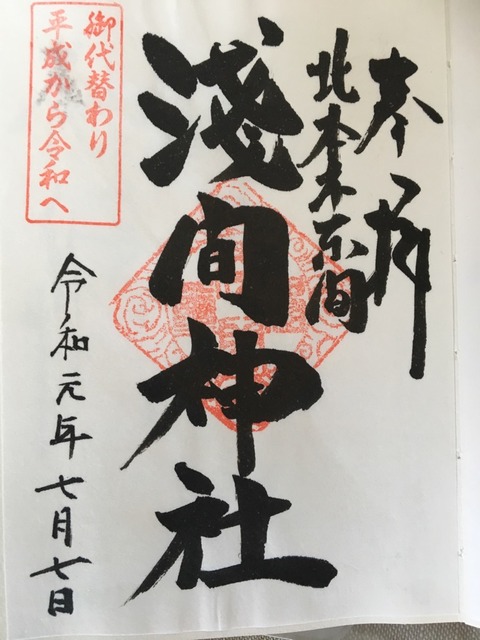 奉拝
北本市東間
淺間神社
御代替わり
平成から令和へ
令和元年七月七日